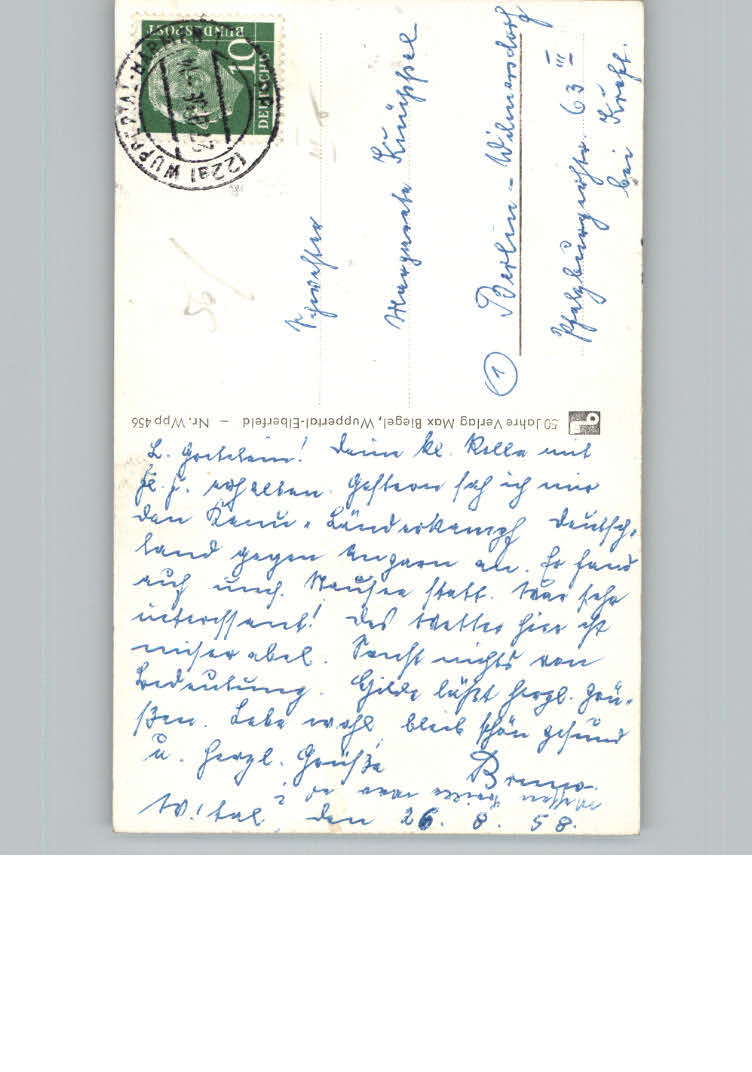 DEUTSCHE
BUNDESPOST
10
(22a) WUPPERTAL-BARMEN
Schwester
Margarete Knüppel
(1) Berlin-Wilmersdorf
Pfalzburgerstr. 63 III
bei Kraft.
50 Jahre Verlag Max Biegel, Wuppertal-Elberfeld – Nr. Wpp 456
L. Gretelein! Deine kl. Rolle mit
erhalten. Gestern sah ich mir
den Kanu-Länderkampf Deutsch-
land gegen Ungarn an. Er fand
auf statt. War sehr
interessant! Das Wetter hier ist
miserabel. Sonst nichts von
Bedeutung. Hilde läßt herzl. grü-
ßen. Lebe wohl bleib schön gesund
u. herzl. Grüße Bruno.
W.'tal, den 26. 8. 58.